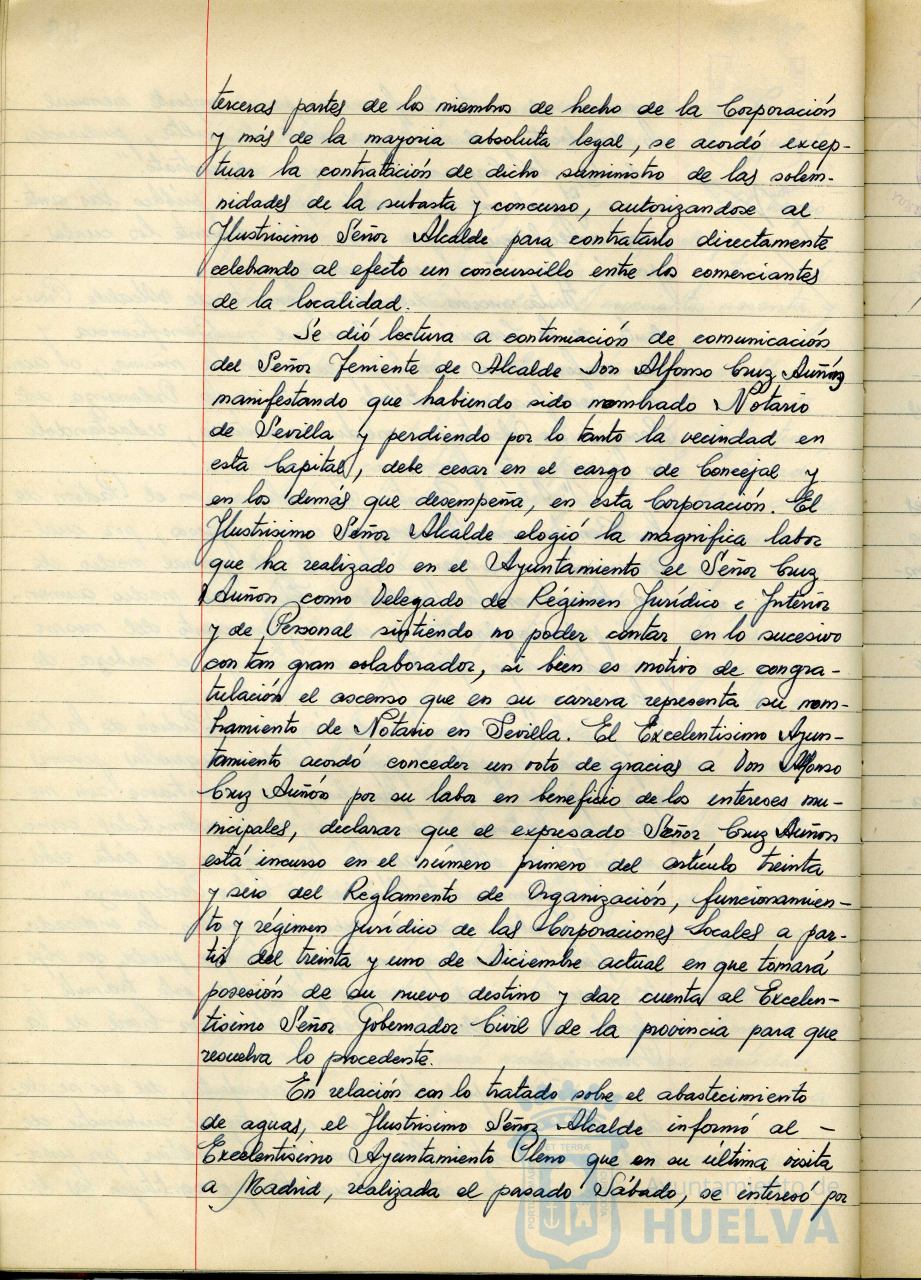 terceras partes de los miembros de hecho de la Corporación
y más de la mayoria absoluta legal, se acordó excep-
tuar la contratación de dicho suministro de las solem-
nidades de la subasta y concurso, autorizandose al
Ilustrisimo Señor Alcalde para contratarlo directamente
celebando al efecto un concursillo entre los comerciantes
de la localidad.
Se dió lectura a continuación de comunicación
del Señor Teniente de Alcalde Don Alfonso Cruz Auñón
manifestando que habiendo sido nombrado Notario
de Sevilla y perdiendo por lo tanto la vecindad en
esta Capital, debe cesar en el cargo de Concejal y
en los demás que desempeña, en esta Corporación. El
Ilustrisimo Señor Alcalde elogió la magnifica labor
que ha realizado en el Ayuntamiento el Señor Cruz
Auñón como Delegado de Régimen Jurídico e Interior
y de Personal sintiendo no poder contar en lo sucesivo
con tan gran colaborador, si bien es motivo de congra-
tulación el ascenso que en su carrera representa su nom-
bramiento de Notario en Sevilla. El Excelentisimo Ayun-
tamiento acordó conceder un voto de gracias a Don Alfonso
Cruz Auñón por su labor en beneficio de los intereses mu-
nicipales, declarar que el expresado Señor Cruz Auñón
está incurso en el número primero del artículo treinta
y seis del Reglamento de Organización, funcionamien-
to y régimen jurídico de las Corporaciones Locales a par-
tir del treinta y uno de Diciembre actual en que tomará
posesión de su nuevo destino y dar cuenta al Excelen-
tisimo Señor Gobernador Civil de la provincia para que
resuelva lo procedente.
En relación con lo tratado sobre el abastecimiento
de aguas, el Ilustrisimo Señor Alcalde informó al -
Excelentisimo Ayuntamiento Pleno que en su última visita
a Madrid, realizada el pasado Sábado, se interesó por
Ayuntamiento de
HUELVA